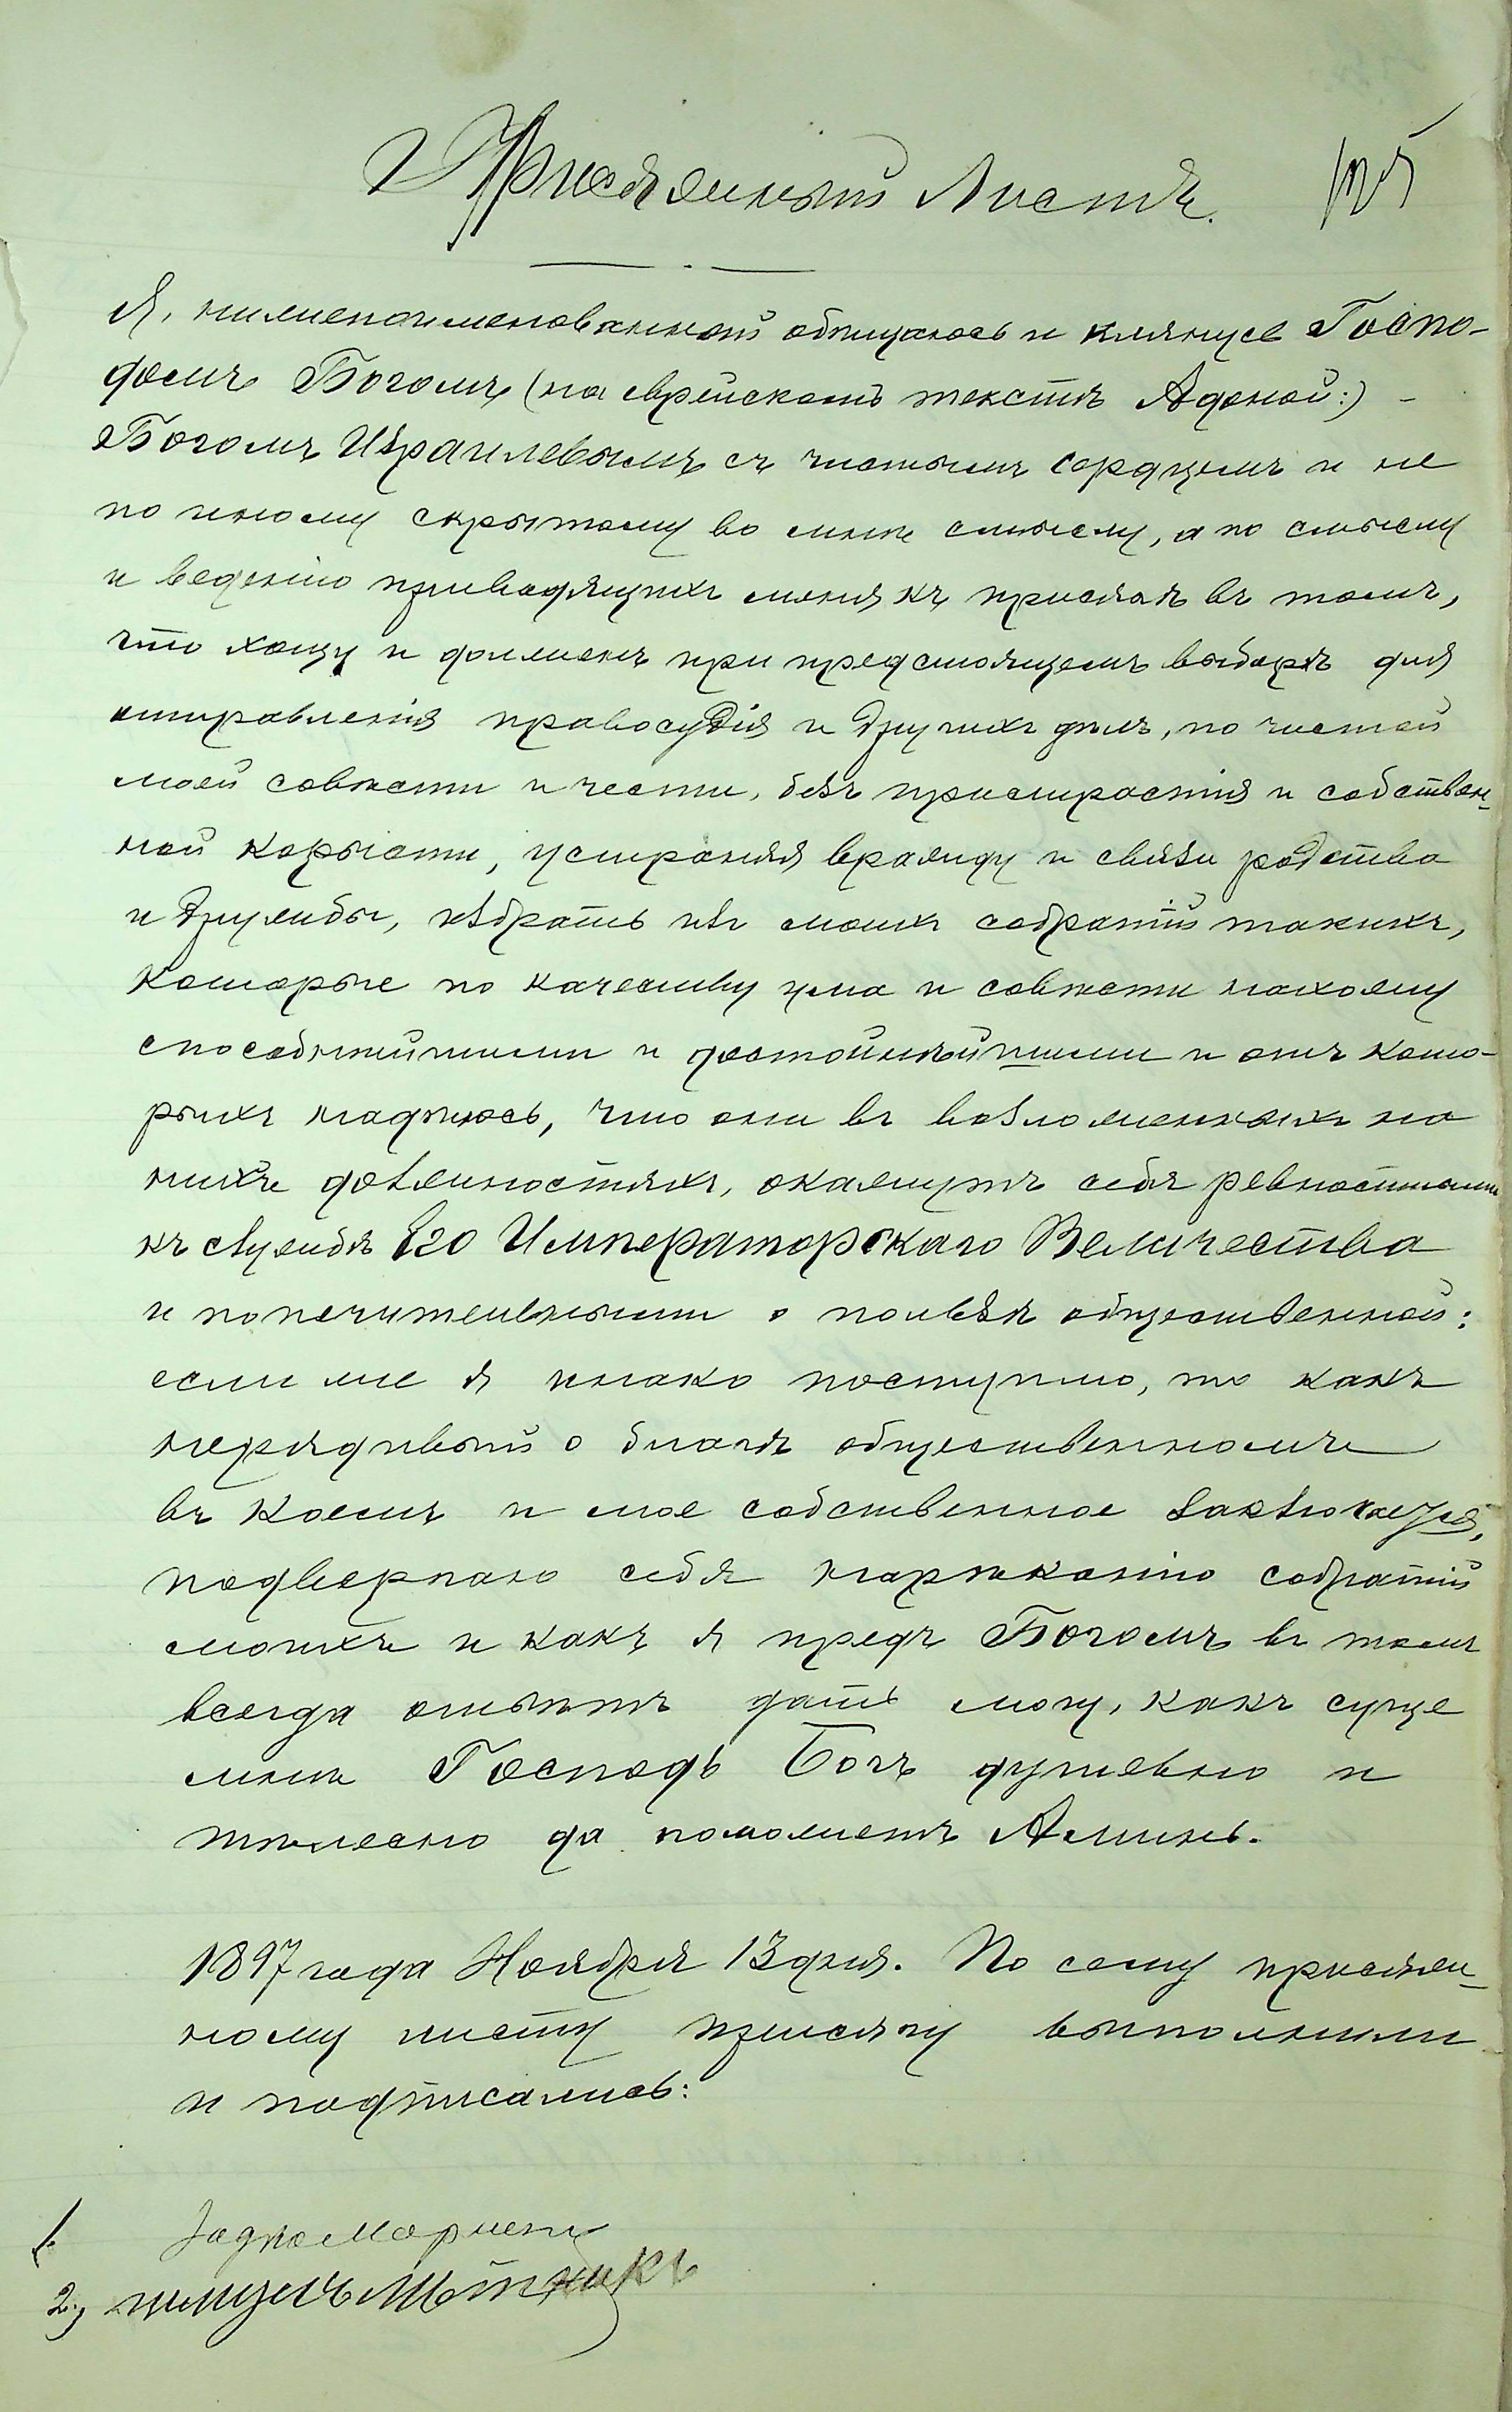 Присяжный Листъ.
Я, нижепоименованный обѣщаюсь и клянусь Госпо-
домъ Богомъ (на еврейскомъ текстѣ Адоной:) –
Богомъ Израилевымъ съ чистымъ сердцемъ и не
по иному скрытому во мнѣ смыслу, а по смыслу
и веденію приводящихъ меня къ присягѣ въ томъ,
что хощу и долженъ при предстоящемъ выборѣ для
отправленія правосудія и другихъ дѣлъ, по чистой
моей совѣсти и чести, безъ пристрастія и собствен-
ной корысти, устраняя вражду и связи родства
и дружбы, избрать изъ моихъ собратій такихъ,
которые по качеству ума и совѣсти нахожу
способнѣйшими и достойнѣйшими и отъ кото-
рыхъ надѣюсь, что они въ возложенныхъ на
нихъ должностяхъ, окажутъ себя ревностными
къ службѣ Его Императорскаго Величества
и попечительными о пользѣ общественной:
если же я инако поступлю, то какъ
нерядивый о благѣ общественномъ
въ коемъ и мое собственное заключается,
подвергаю себя нареканію собратій
моихъ и какъ я предъ Богомъ въ томъ
всегда отвѣтъ дать могу, какъ суще
мнѣ Господь Богъ душевно и
тѣлесно да поможетъ Аминь.
1897 года Ноября 13 дня. По сему присяж-
ному листу присягу выполнили
и подписались:
1.
2,